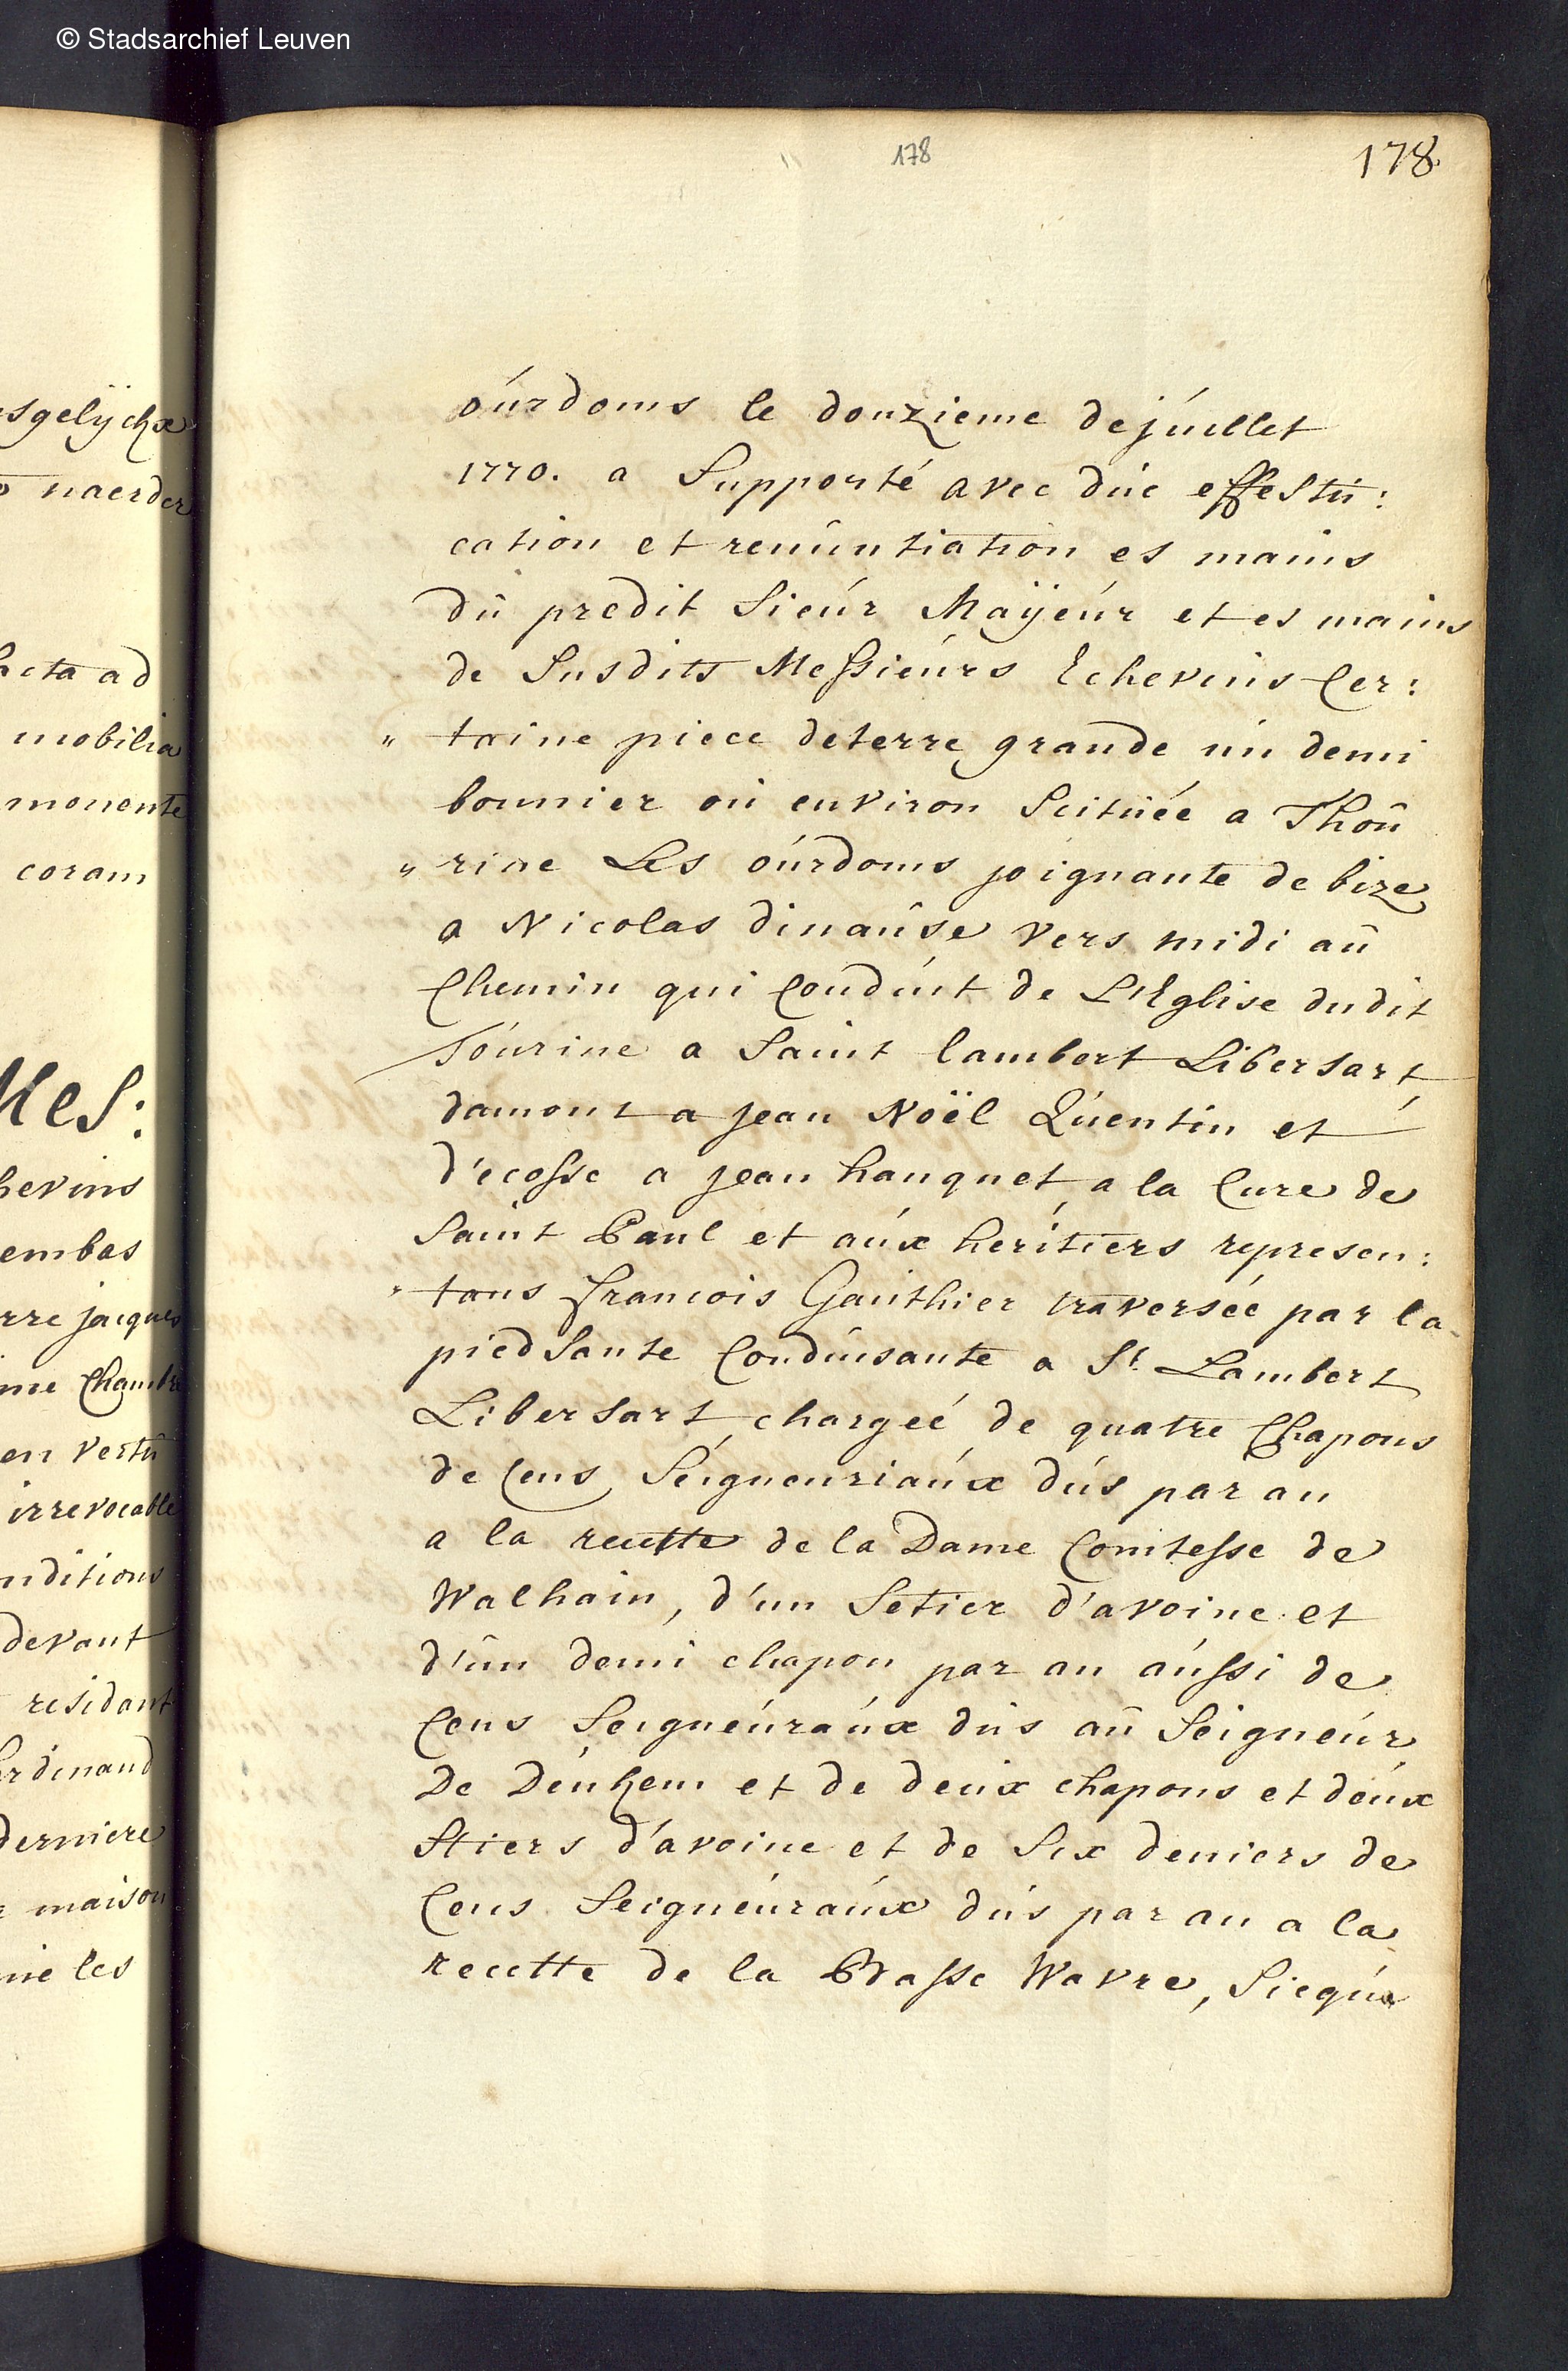 © Stadsarchief Leuven
sgelijckx
naerder
acta ad
mobilia
monente
coram
Mes:
hevins
embas
rre jacques
me Chambre
en vertu
irrevocable
nditions
devant
residant
rdinand
derniere
maison
me les
178
178
oúrdoms le douzieme dejúillet
1770. a Supporté avec düe effestu:
cation et renúntiation es mains
dû predit Sieúr Maÿeúr et es mains
de Susdits Messieúrs Echevins Cer:
" taine piece deterre grande ún demi
bonnier oú environ Scitúée a Thoû
" rine Les oúrdoms joignante de bize
a Nicolas dinaúse vers midi aû
Chemin qui Condúit de L'Eglise dudit
Toúrine a Saint lambert Libersart,
damont a jean Noël Qúentin et
d'ecosse a jean hanquet, a la Cure de
Saint Paul et aúx heritiers represen:
" tans francois Gaúthier traversée par la
piedsante Condúisante a St. Lambert
Libersart chargeé de quatre Chapons
de Cens Seigneuriaúx dús par an
a la recette de la Dame Comtesse de
Walhain, d'un Setier d'avoine et
d'ûn demi chapon par an aússi de
Cens Seigneúraúx dús aû Seigneúr
De Deúhem et de deúx chapons et deúx
Stiers d'avoine et de Six deniers de
Cens Seigneúraúx dús par an a la
recette de la Basse Wavre, Sicqúe